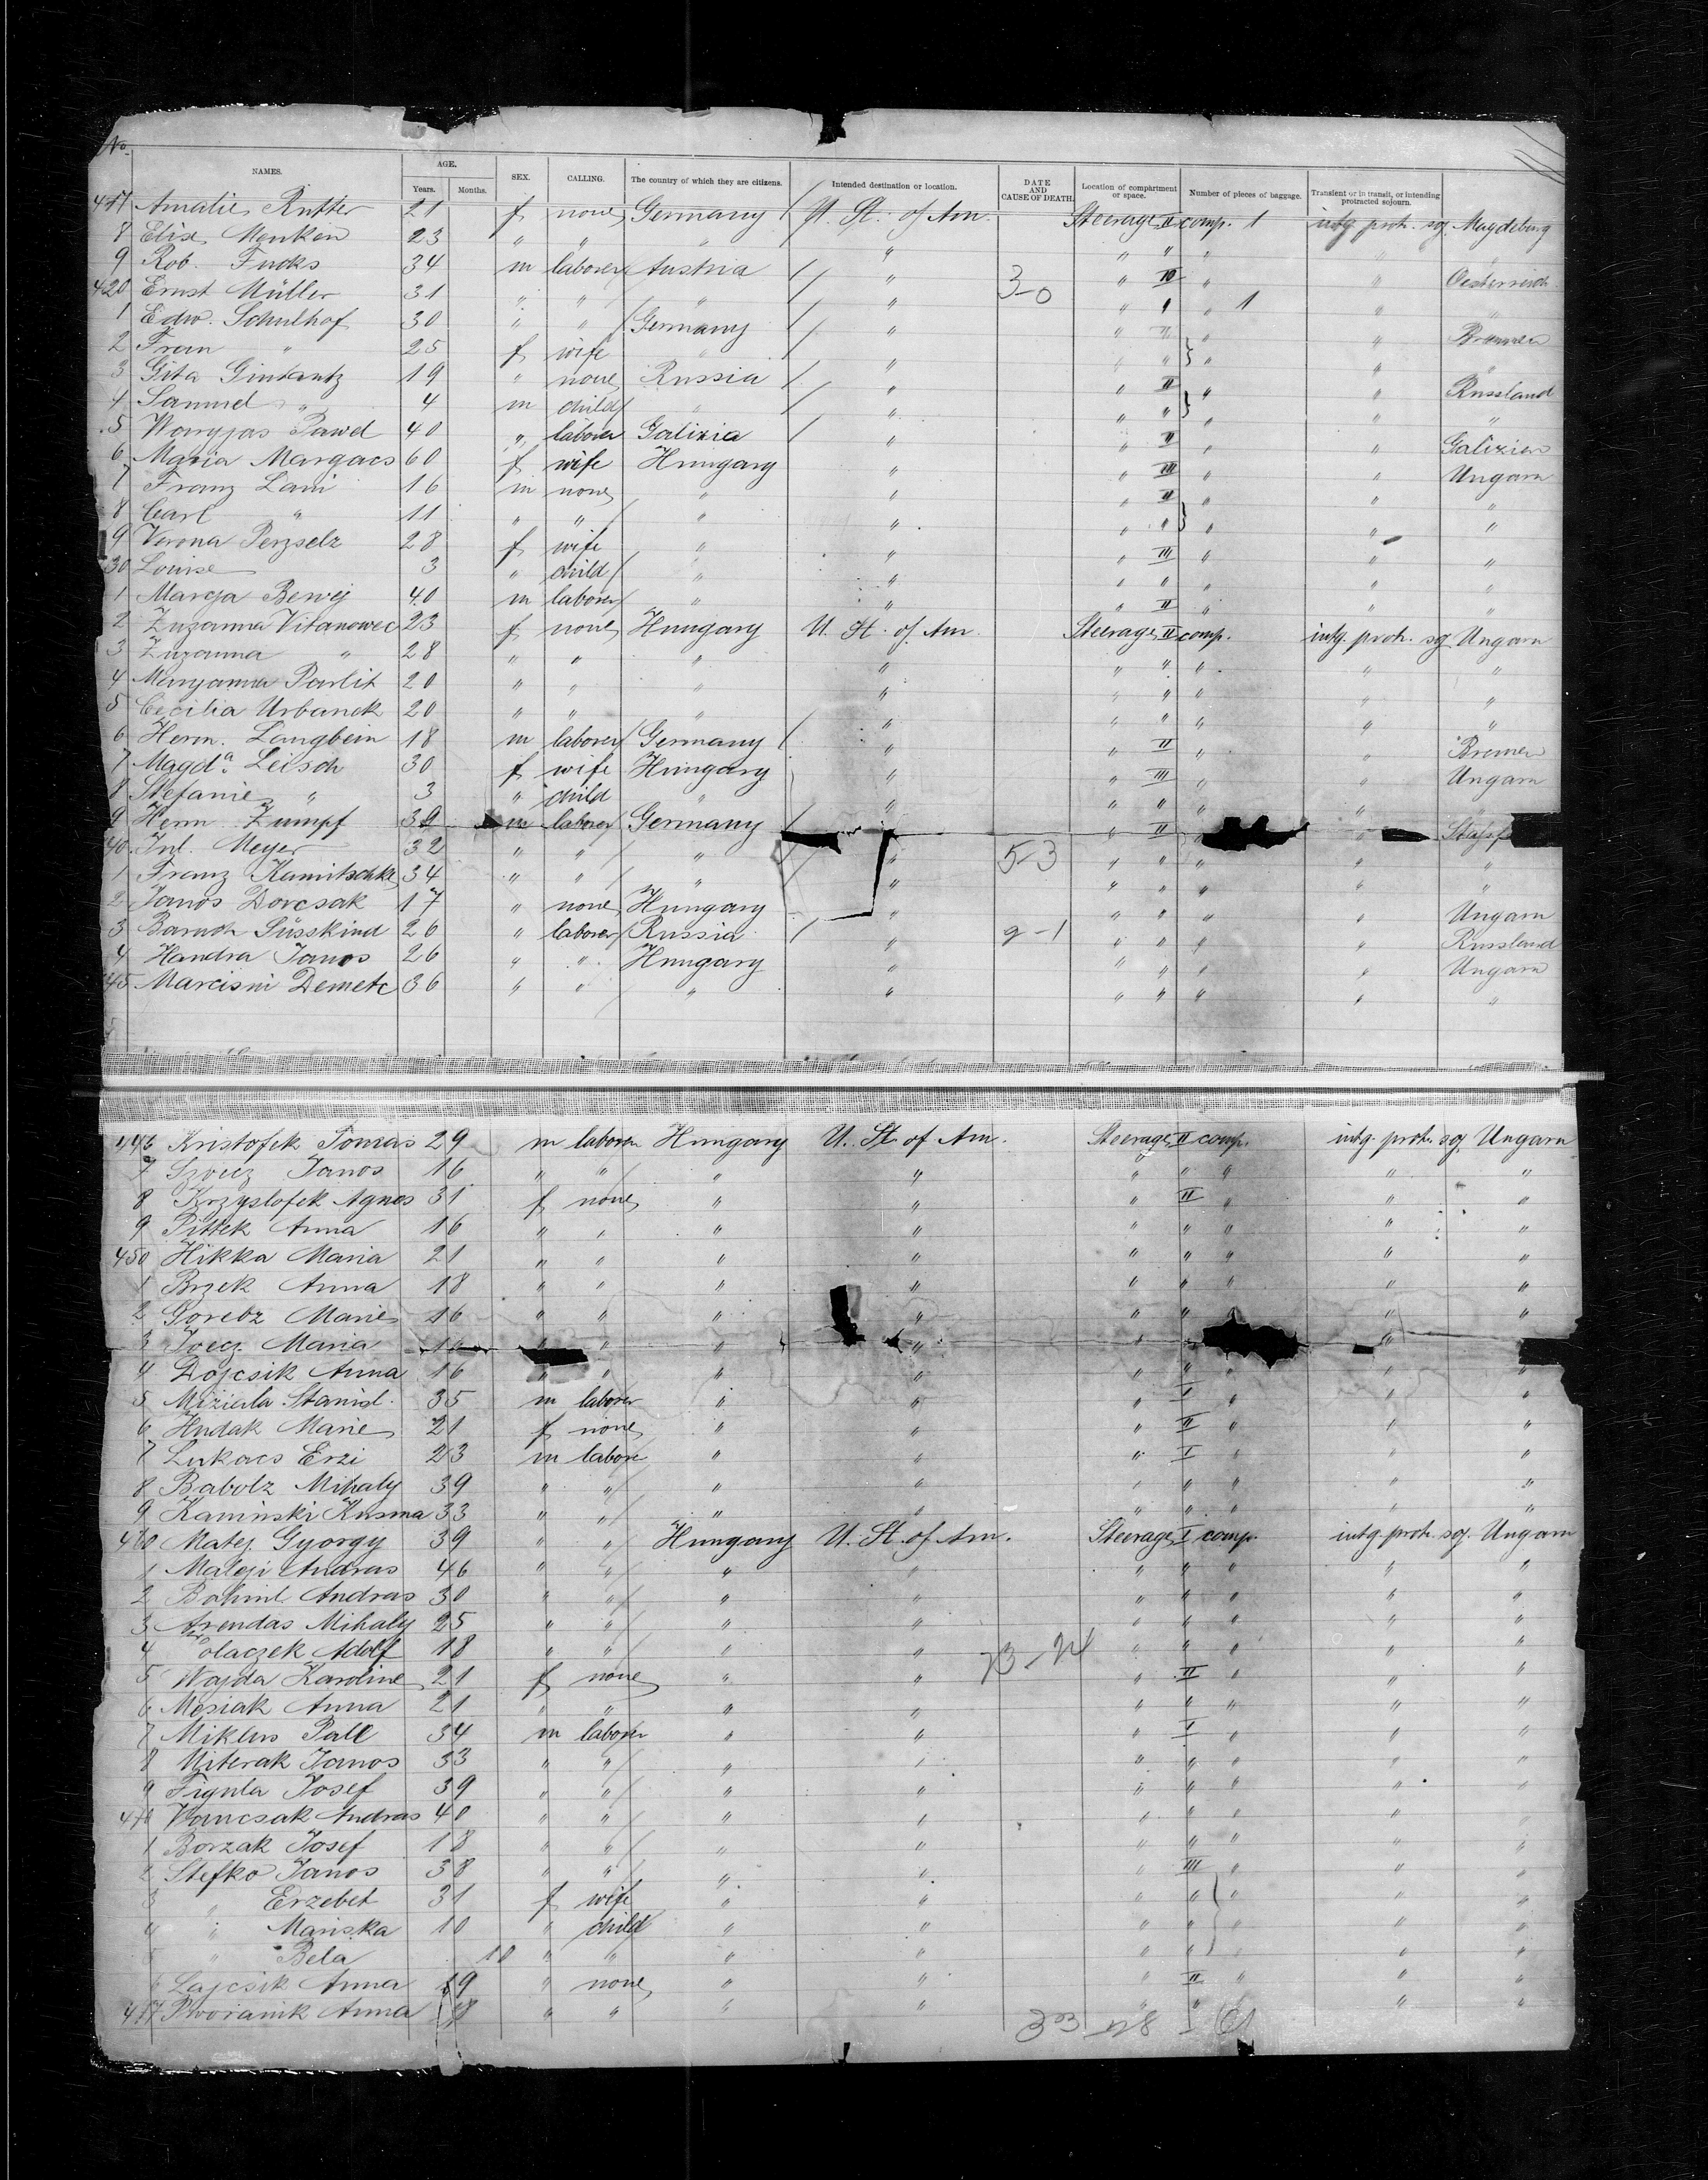 No. NAMES. AGE. Years. Months. SEX. CALLING. The country of which they are citizens. Intended destination or location. DATE AND CAUSE OF DEATH. Location of compartment or space. Number of pieces of baggage. Transient or in transit, or intending protracted sojourn.
417 Amalie Rutter 21 f none Germany U. St. of Am. Steerage II comp. 1 intg. protr. soj. Magdeburg
8 Elise Menken 23 " " " " " " " " "
9 Rob. Fuchs 34 m laborer Austria " " III " " Oesterreich
420 Ernst Müller 31 " " " " 3-0 " " " 1 " "
1 Edw. Schulhof 30 " " Germany " " " " " Bremen
2 Frau " 25 f wife " " " " " " "
3 Gita Gintantz 19 " none Russia " " II " " Russland
4 Samuel " 4 m child " " " " " " "
5 Pawel 40 " laborer Galizia " " II " " Galizien
6 Maria Margacs 60 f wife Hungary " " III " " Ungarn
7 Franz Lani 16 m none " " " II " " "
8 Carl " 11 " " " " " " " " "
9 Verona Perzselz 28 f wife " " " III " " "
30 Louise 3 " child " " " " " " "
1 Marga Berwej 40 m laborer " " " II " " "
2 Zuzanna Vitanowec 23 f none Hungary U. St. of Am. Steerage II comp. intg. protr. soj. Ungarn
3 Zuzanna " 28 " " " " " " " " "
4 Maryanna Parlit 20 " " " " " " " " "
5 Cecilia Urbanek 20 " " " " " " " " "
6 Herm. Langbein 18 m laborer Germany " " II " " Bremen
7 Magda Leisch 30 f wife Hungary " " III " " Ungarn
8 Stefanie " 3 " child " " " " " " "
9 Herm Zumpf 39 m laborer Germany " " II "
40 Jul. Meyer 32 " " " " 5-3 " " " " "
1 Franz Kamitschke 34 " " " " " " " " "
2 Janos Dorcsak 17 " none Hungary " " " " " Ungarn
3 Baruch Süsskind 26 " laborer Russia " 2-1 " " " " Russland
4 Handra Janos 26 " " Hungary " " " " " Ungarn
45 Marcisni Demetr 36 " " " " " " " " "
446 Kristofek Tomas 29 m laborer Hungary U. St. of Am. Steerage II comp. intg. protr. soj. Ungarn
7 Janos 16 " " " " " " " " "
8 Krzystofek Agnes 31 f none " " " II " " "
9 Pittek Anna 16 " " " " " " " " "
450 Hikka Maria 21 " " " " " " " " "
1 Brzek Anna 18 " " " " " " " " "
2 Gorebz Marie 16 " " " " " " " "
3 Maria " " " " " "
4 Dojcsik Anna 16 " " " " " " " " "
5 Miziala Stanisl. 35 m laborer " " " I " " "
6 Hudak Marie 21 f none " " " II " " "
7 Lukacs Erzi 23 m labore " " " I " " "
8 Babolz Mihaly 39 " " " " " " " " "
9 Kaminski Kusma 33 " " " " " " " " "
460 Matej Gyorgy 39 " " Hungary U. St. of Am. Steerage I comp. intg. protr. soj. Ungarn
1 Mateji Andras 46 " " " " " " " " "
2 Andras 30 " " " " " " " " "
3 Arendas Mihaly 25 " " " " " " " " "
4 Polaczek Adolf 18 " " " " " " " " "
5 Wajda Karoline 21 f none " " " II " " "
6 Mesiak Anna 21 " " " " " " " " "
7 Miklus Pall 34 m laborer " " " I " " "
8 Miterak Janos 33 " " " " " " " " "
9 Figula Josef 39 " " " " " " " " "
470 Vancsak Andras 40 " " " " " " " " "
1 Borzak Josef 18 " " " " " " " " "
2 Stefko Janos 38 " " " " " III " " "
3 " Erzebet 31 f wife " " " " " " "
4 " Mariska 10 " child " " " " " " "
5 " Bela 10 " " " " " " " " "
6 Lajcsik Anna 19 " none " " " II " " "
477 Dworanik Anna 18 " " " " " " " " "